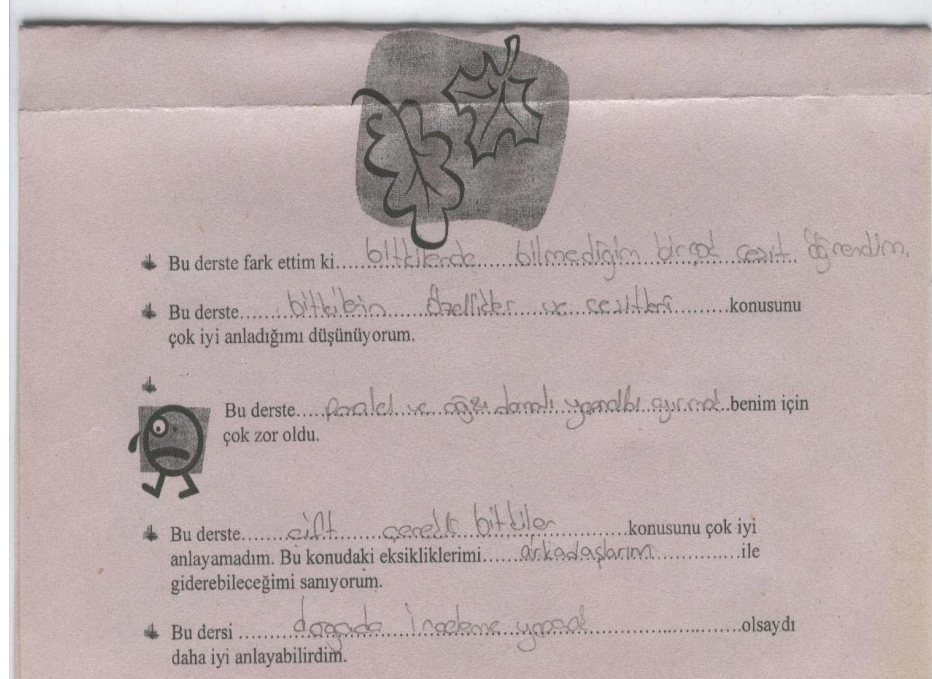 Bu derste fark ettim ki.....bitkilerde bilmediğim birçok çeşit öğrendim.
Bu derste.....bitkilerin özellikler ve çeşitleri.....konusunu
çok iyi anladığımı düşünüyorum.
Bu derste.....paralel ve ağsı damarlı yaprakları ayırmak..benim için
çok zor oldu.
Bu derste.....çift çenekli bitkiler.....konusunu çok iyi
anlayamadım. Bu konudaki eksikliklerimi.....arkadaşlarım.....ile
giderebileceğimi sanıyorum.
Bu dersi .....doğada inceleme yaparak.....olsaydı
daha iyi anlayabilirdim.